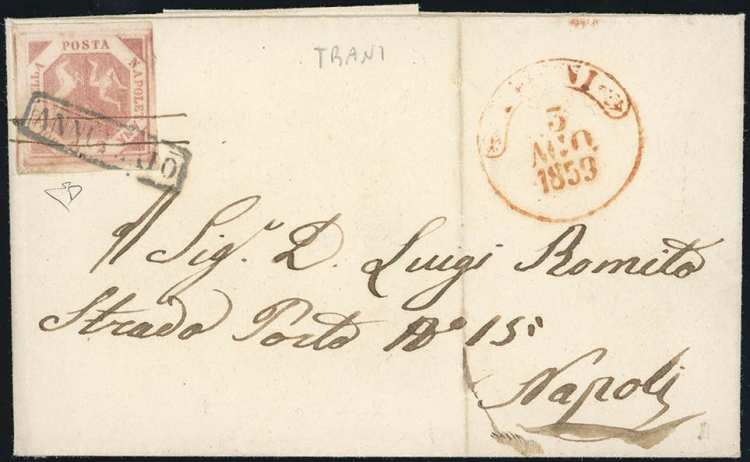 POSTA
NAPOLE
TRANI
TRANI
3
AGO
1859
Sig.r D. Luigi Romito
Strada Porto No 15
Napoli